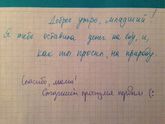 Доброе утро, младший!
Я тебе оставила деньги на еду, и,
как ты просил, на природу.
Спасибо, мама!
Старший проснулся первым (: